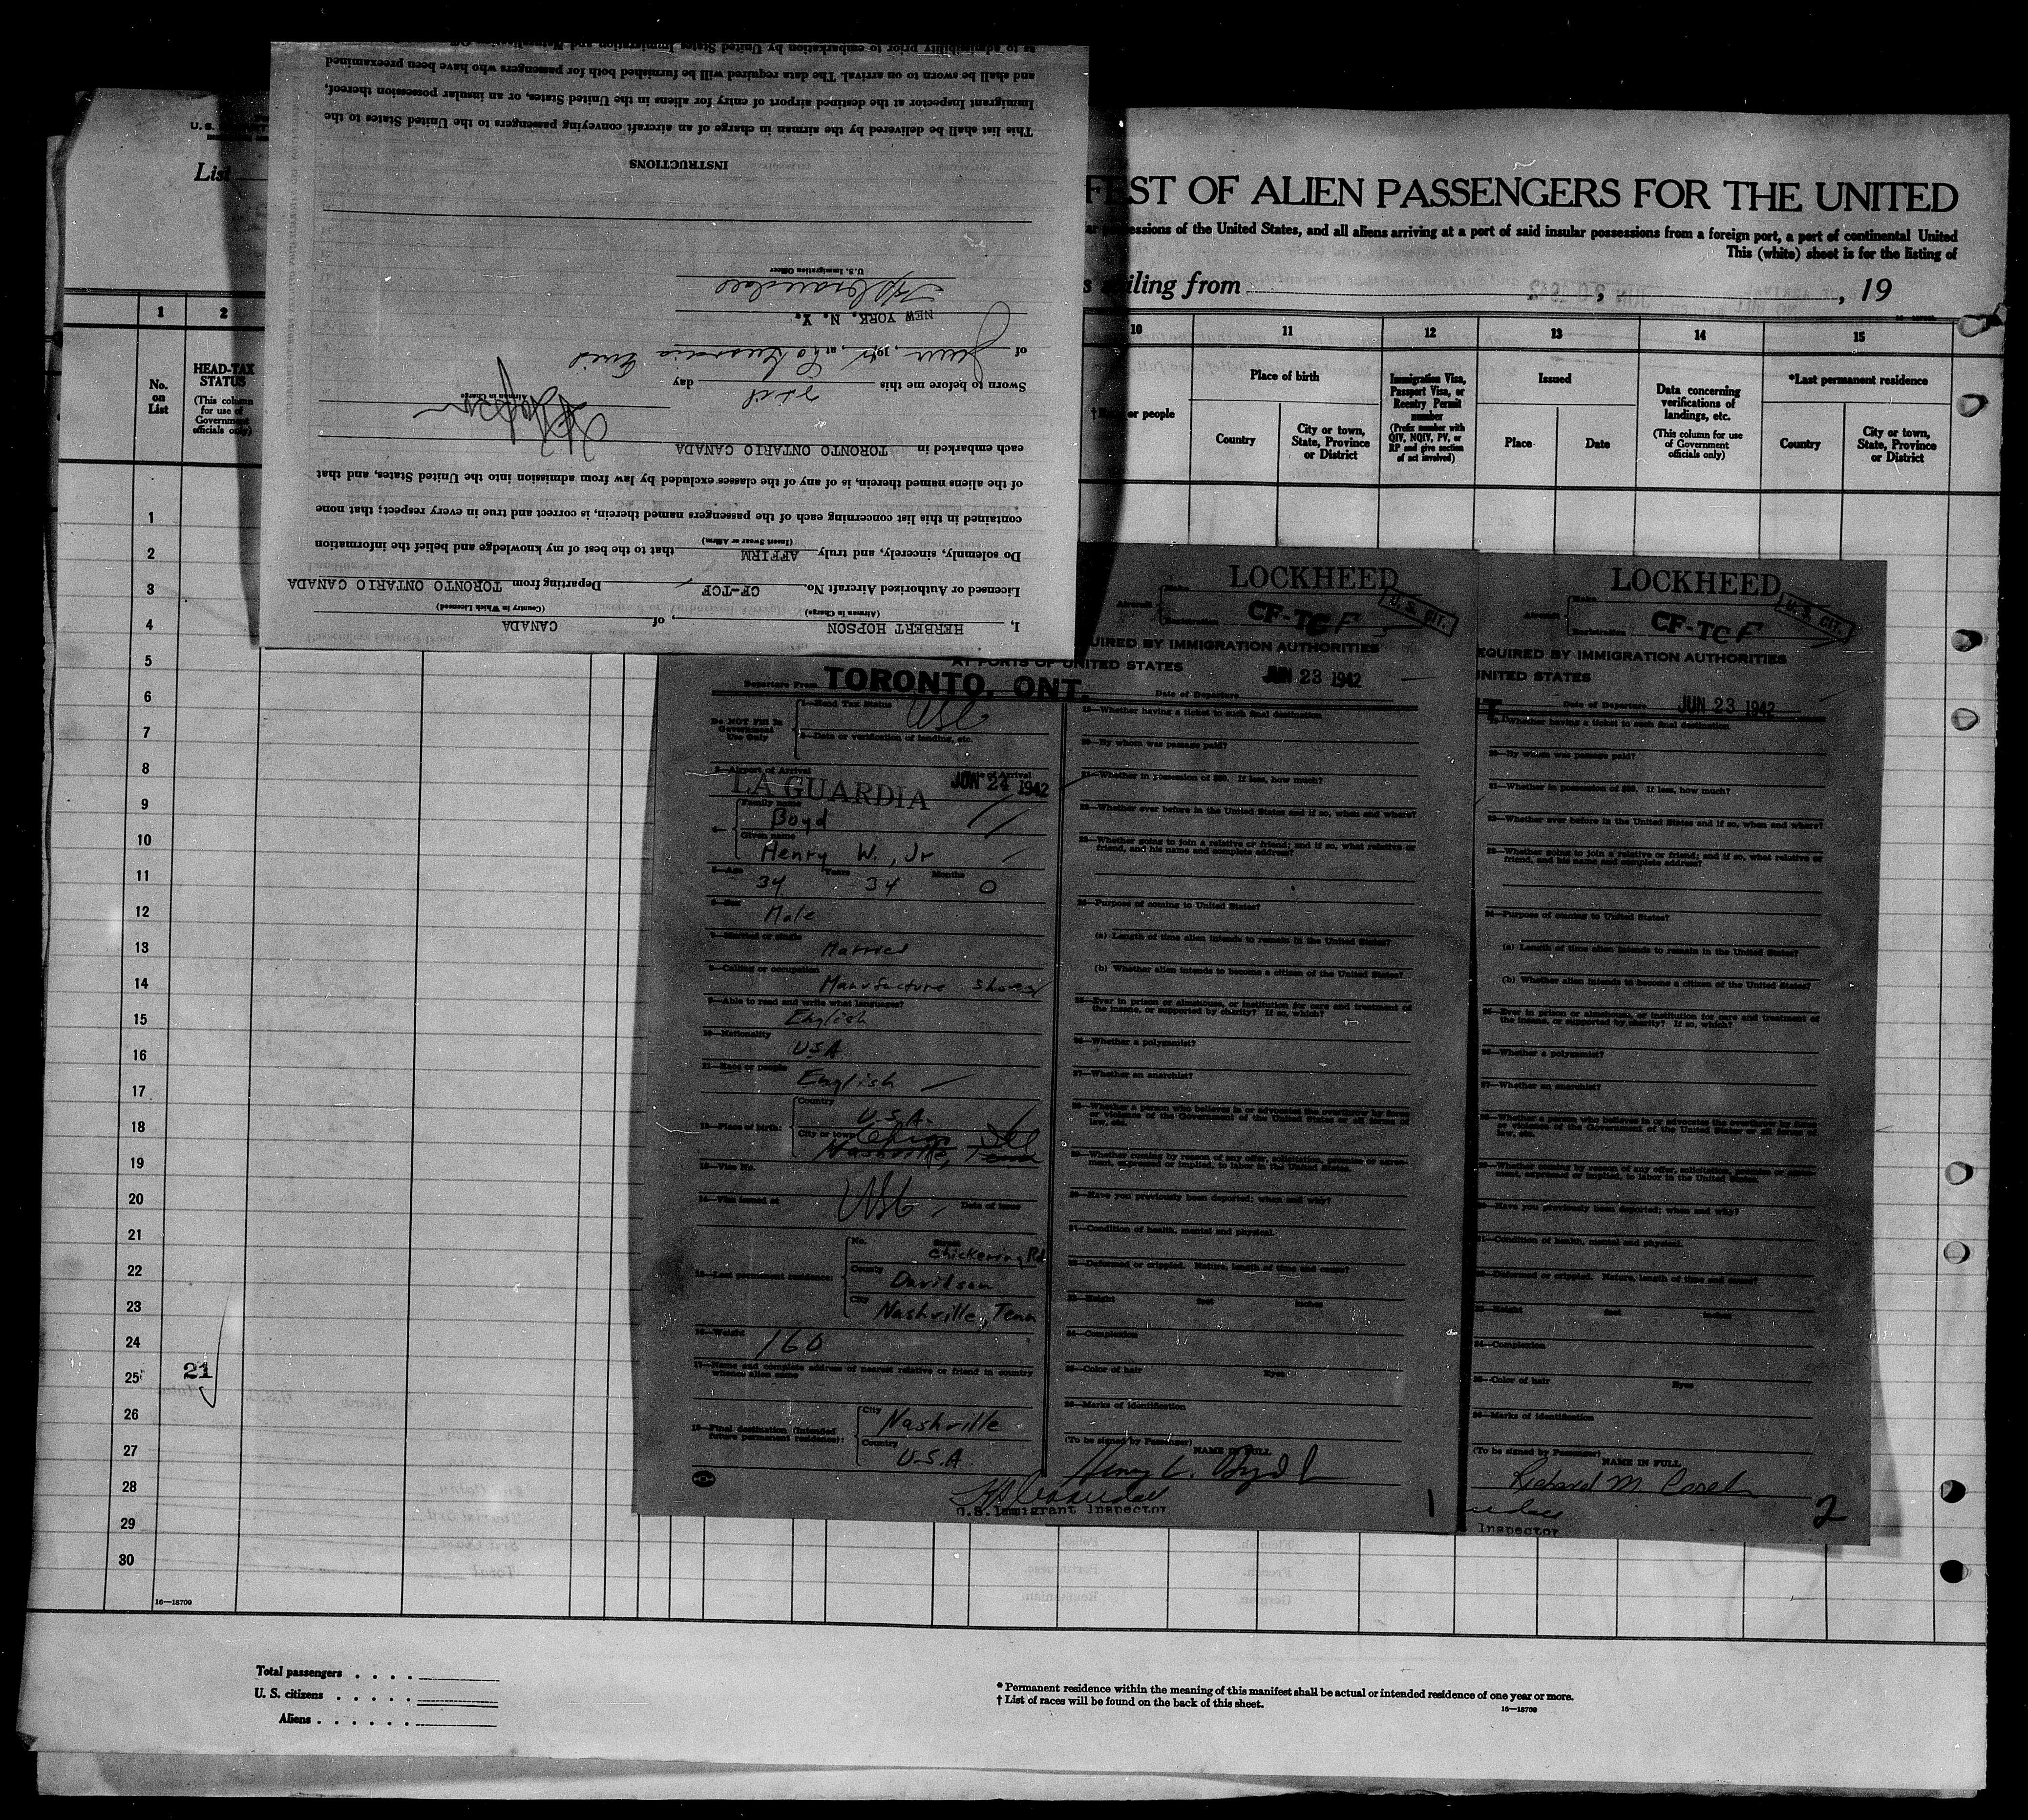 as to admissibility prior to embarkation by United States Immigration and
and shall be sworn to on arrival. The data required will be furnished both for passengers who have been preexamined
Immigrant Inspector at the destined airport of entry for aliens in the United States, or an insular possession thereof,
This list shall be delivered by the airman in charge of an aircraft conveying passengers to the United States to the
INSTRUCTIONS
U.S. Immigration Officer
NEW YORK, N. Y.
of June, 194, at
Sworn to before me this day
Airman in Charge
each embarked in TORONTO ONTARIO CANADA
of the aliens named therein, is of any of the classes excluded by law from admission into the United States, and that
contained in this list concerning each of the passengers named therein, is correct and true in every respect; that none
(Insert Swear or Affirm)
Do solemnly, sincerely, and truly AFFIRM that to the best of my knowledge and belief the information
Licensed or Authorized Aircraft No. CF-TCF Departing from TORONTO ONTARIO CANADA
(Airman in Charge) (Country in Which Licensed)
I, HERBERT HOPSON, of CANADA
U. S.
List
FEST OF ALIEN PASSENGERS FOR THE UNITED
essions of the United States, and all aliens arriving at a port of said insular possessions from a foreign port, a port of continental United
This (white) sheet is for the listing of
iling from , , 19
JUN 30 1942
1 2 10 11 12 13 14 15
No. on List
HEAD-TAX STATUS
(This column for use of Government officials only)
or people
Place of birth
Country
City or town, State, Province or District
Immigration Visa, Passport Visa, or Reentry Permit number
(Prefix number with QIV, NQIV, PV, or RP and give section of act involved)
Issued
Place
Date
Data concerning verifications of landings, etc.
(This column for use of Government officials only)
*Last permanent residence
Country
City or town, State, Province or District
1
2
3
4
5
6
7
8
9
10
11
12
13
14
15
16
17
18
19
20
21
22
23
24
25
26
27
28
29
30
21
16—18709
LOCKHEED
Aircraft
Make
Registration CF-TCF
U. S. CIT.
UIRED BY IMMIGRATION AUTHORITIES
AT PORTS OF UNITED STATES
Departure From TORONTO, ONT.
Date of Departure JUN 23 1942
Do NOT Fill In Government Use Only
1—Head Tax Status USC
2—Data or verification of landing, etc.
3—Airport of Arrival LA GUARDIA
Date of Arrival JUN 24 1942
4—
Family name
Boyd
Given name
Henry W., Jr
5—Age 34 Years 34 Months 0
6—Sex
Male
7—Married or single
Married
8—Calling or occupation
Manufacture Shoes
9—Able to read and write what languages?
English
10—Nationality
USA
11—Race or people
English
12—Place of birth:
Country
U.S.A.
City or town
Nashville, Tenn
13—Visa No.
14—Visa issued at USC Date of issue
15—Last permanent residence:
No. Street
Chickering Rd
County
Davidson
City
Nashville, Tenn
16—Weight
160
17—Name and complete address of nearest relative or friend in country whence alien came
18—Final destination (Intended future permanent residence):
City
Nashville
Country
U.S.A.
U.S. Immigrant Inspector
19—Whether having a ticket to such final destination
20—By whom was passage paid?
21—Whether in possession of $50. If less, how much?
22—Whether ever before in the United States and if so, when and where?
23—Whether going to join a relative or friend; and if so, what relative or friend, and his name and complete address?
24—Purpose of coming to United States?
(a) Length of time alien intends to remain in the United States?
(b) Whether alien intends to become a citizen of the United States?
25—Ever in prison or almshouse, or institution for care and treatment of the insane, or supported by charity? If so, which?
26—Whether a polygamist?
27—Whether an anarchist?
28—Whether a person who believes in or advocates the overthrow by force or violence of the Government of the United States or all forms of law, etc.
29—Whether coming by reason of any offer, solicitation, promise or agreement, expressed or implied, to labor in the United States.
30—Have you previously been deported; when and why?
31—Condition of health, mental and physical.
32—Deformed or crippled. Nature, length of time and cause?
33—Height feet inches
34—Complexion
35—Color of hair Eyes
36—Marks of identification
(To be signed by Passenger) NAME IN FULL
Henry W. Boyd Jr
1
LOCKHEED
Aircraft
Make
Registration CF-TCF
U. S. CIT.
EQUIRED BY IMMIGRATION AUTHORITIES
UNITED STATES
Date of Departure JUN 23 1942
19—Whether having a ticket to such final destination
20—By whom was passage paid?
21—Whether in possession of $50. If less, how much?
22—Whether ever before in the United States and if so, when and where?
23—Whether going to join a relative or friend; and if so, what relative or friend, and his name and complete address?
24—Purpose of coming to United States?
(a) Length of time alien intends to remain in the United States?
(b) Whether alien intends to become a citizen of the United States?
25—Ever in prison or almshouse, or institution for care and treatment of the insane, or supported by charity? If so, which?
26—Whether a polygamist?
27—Whether an anarchist?
28—Whether a person who believes in or advocates the overthrow by force or violence of the Government of the United States or all forms of law, etc.
29—Whether coming by reason of any offer, solicitation, promise or agreement, expressed or implied, to labor in the United States.
30—Have you previously been deported; when and why?
31—Condition of health, mental and physical.
32—Deformed or crippled. Nature, length of time and cause?
33—Height feet inches
34—Complexion
35—Color of hair Eyes
36—Marks of identification
(To be signed by Passenger) NAME IN FULL
Richard M.
Inspector
2
Total passengers . . . .
U. S. citizens . . . . .
Aliens . . . . . .
* Permanent residence within the meaning of this manifest shall be actual or intended residence of one year or more.
† List of races will be found on the back of this sheet.
16—18709